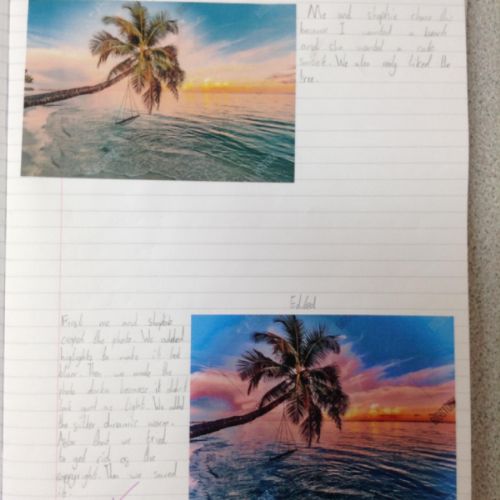 Me and stephie chose this
because I wanted a beach
and she wanted a cute
sunset. We also really liked the
tree.
Edited
First me and stephie
the photo. We added
highlights to make it look
Then we made the
photo darker because it didn't
look good as light. We added
the filter dramatic warm.
After that we tried
to get rid of the
copyrights. Then we saved
it.